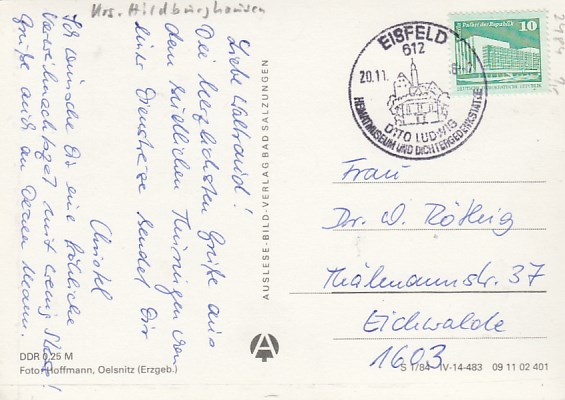 Krs. Hildburghausen
Liebe Waltraud!
Die herzlichsten Grüße aus
dem südlichen Thüringen von
einer Dienstreise sendet Dir
Christel
Ich wünsche Dir eine fröhliche
Vorweihnachtszeit mit wenig Streß!
Grüße auch an Deinen Mann.
AUSLESE-BILD-VERLAG BAD SALZUNGEN
EISFELD
612
20.11.
OTTO LUDWIG
HEIMATMUSEUM UND DICHTERGEDENKSTÄTTE
Palast der Republik
10
DEUTSCHE DEMOKRATISCHE REPUBLIK
Frau
Dr. W. Röthig
Thälmannstr. 37
Eichwalde
1603
A
DDR 0,25 M
Foto: Hoffmann, Oelsnitz (Erzgeb.)
S 1/84 IV-14-483 09 11 02 401